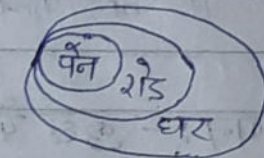 पेन
रोड
घर